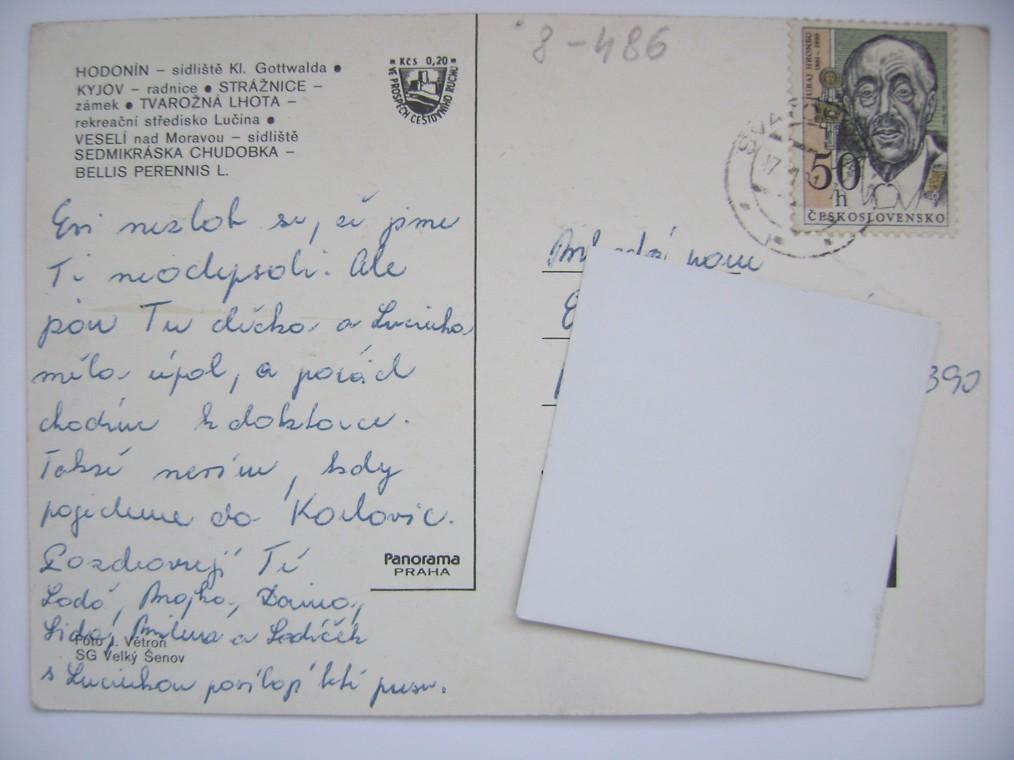 8-486
HODONÍN – sídliště Kl. Gottwalda •
KYJOV – radnice • STRÁŽNICE –
zámek • TVAROŽNÁ LHOTA –
rekreační středisko Lučina •
VESELÍ nad Moravou – sídliště
SEDMIKRÁSKA CHUDOBKA –
BELLIS PERENNIS L.
Kčs 0,20
VE PROSPĚCH CESTOVNÍHO RUCHU
JURAJ HRONEC
1881–1959
50
h
ČESKOSLOVENSKO
17
Evi nezlob se, že jsme
Ti neodepsali. Ale
jsou Tu a Lucinka
měla úpal, a pořád
chodím k doktorce.
Takže nevím, kdy
pojedeme do Karlovic.
Pozdravují Tě
Milena a Ladíček
s Lucinkou posílají Ti pusu.
390
Panorama
PRAHA
Foto J. Větroň
SG Velký Šenov